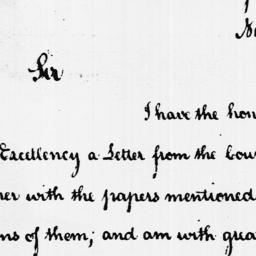 Sir
I have the hon
Excellency a Letter from the Cou
er with the papers mentioned
ns of them; and am with grea